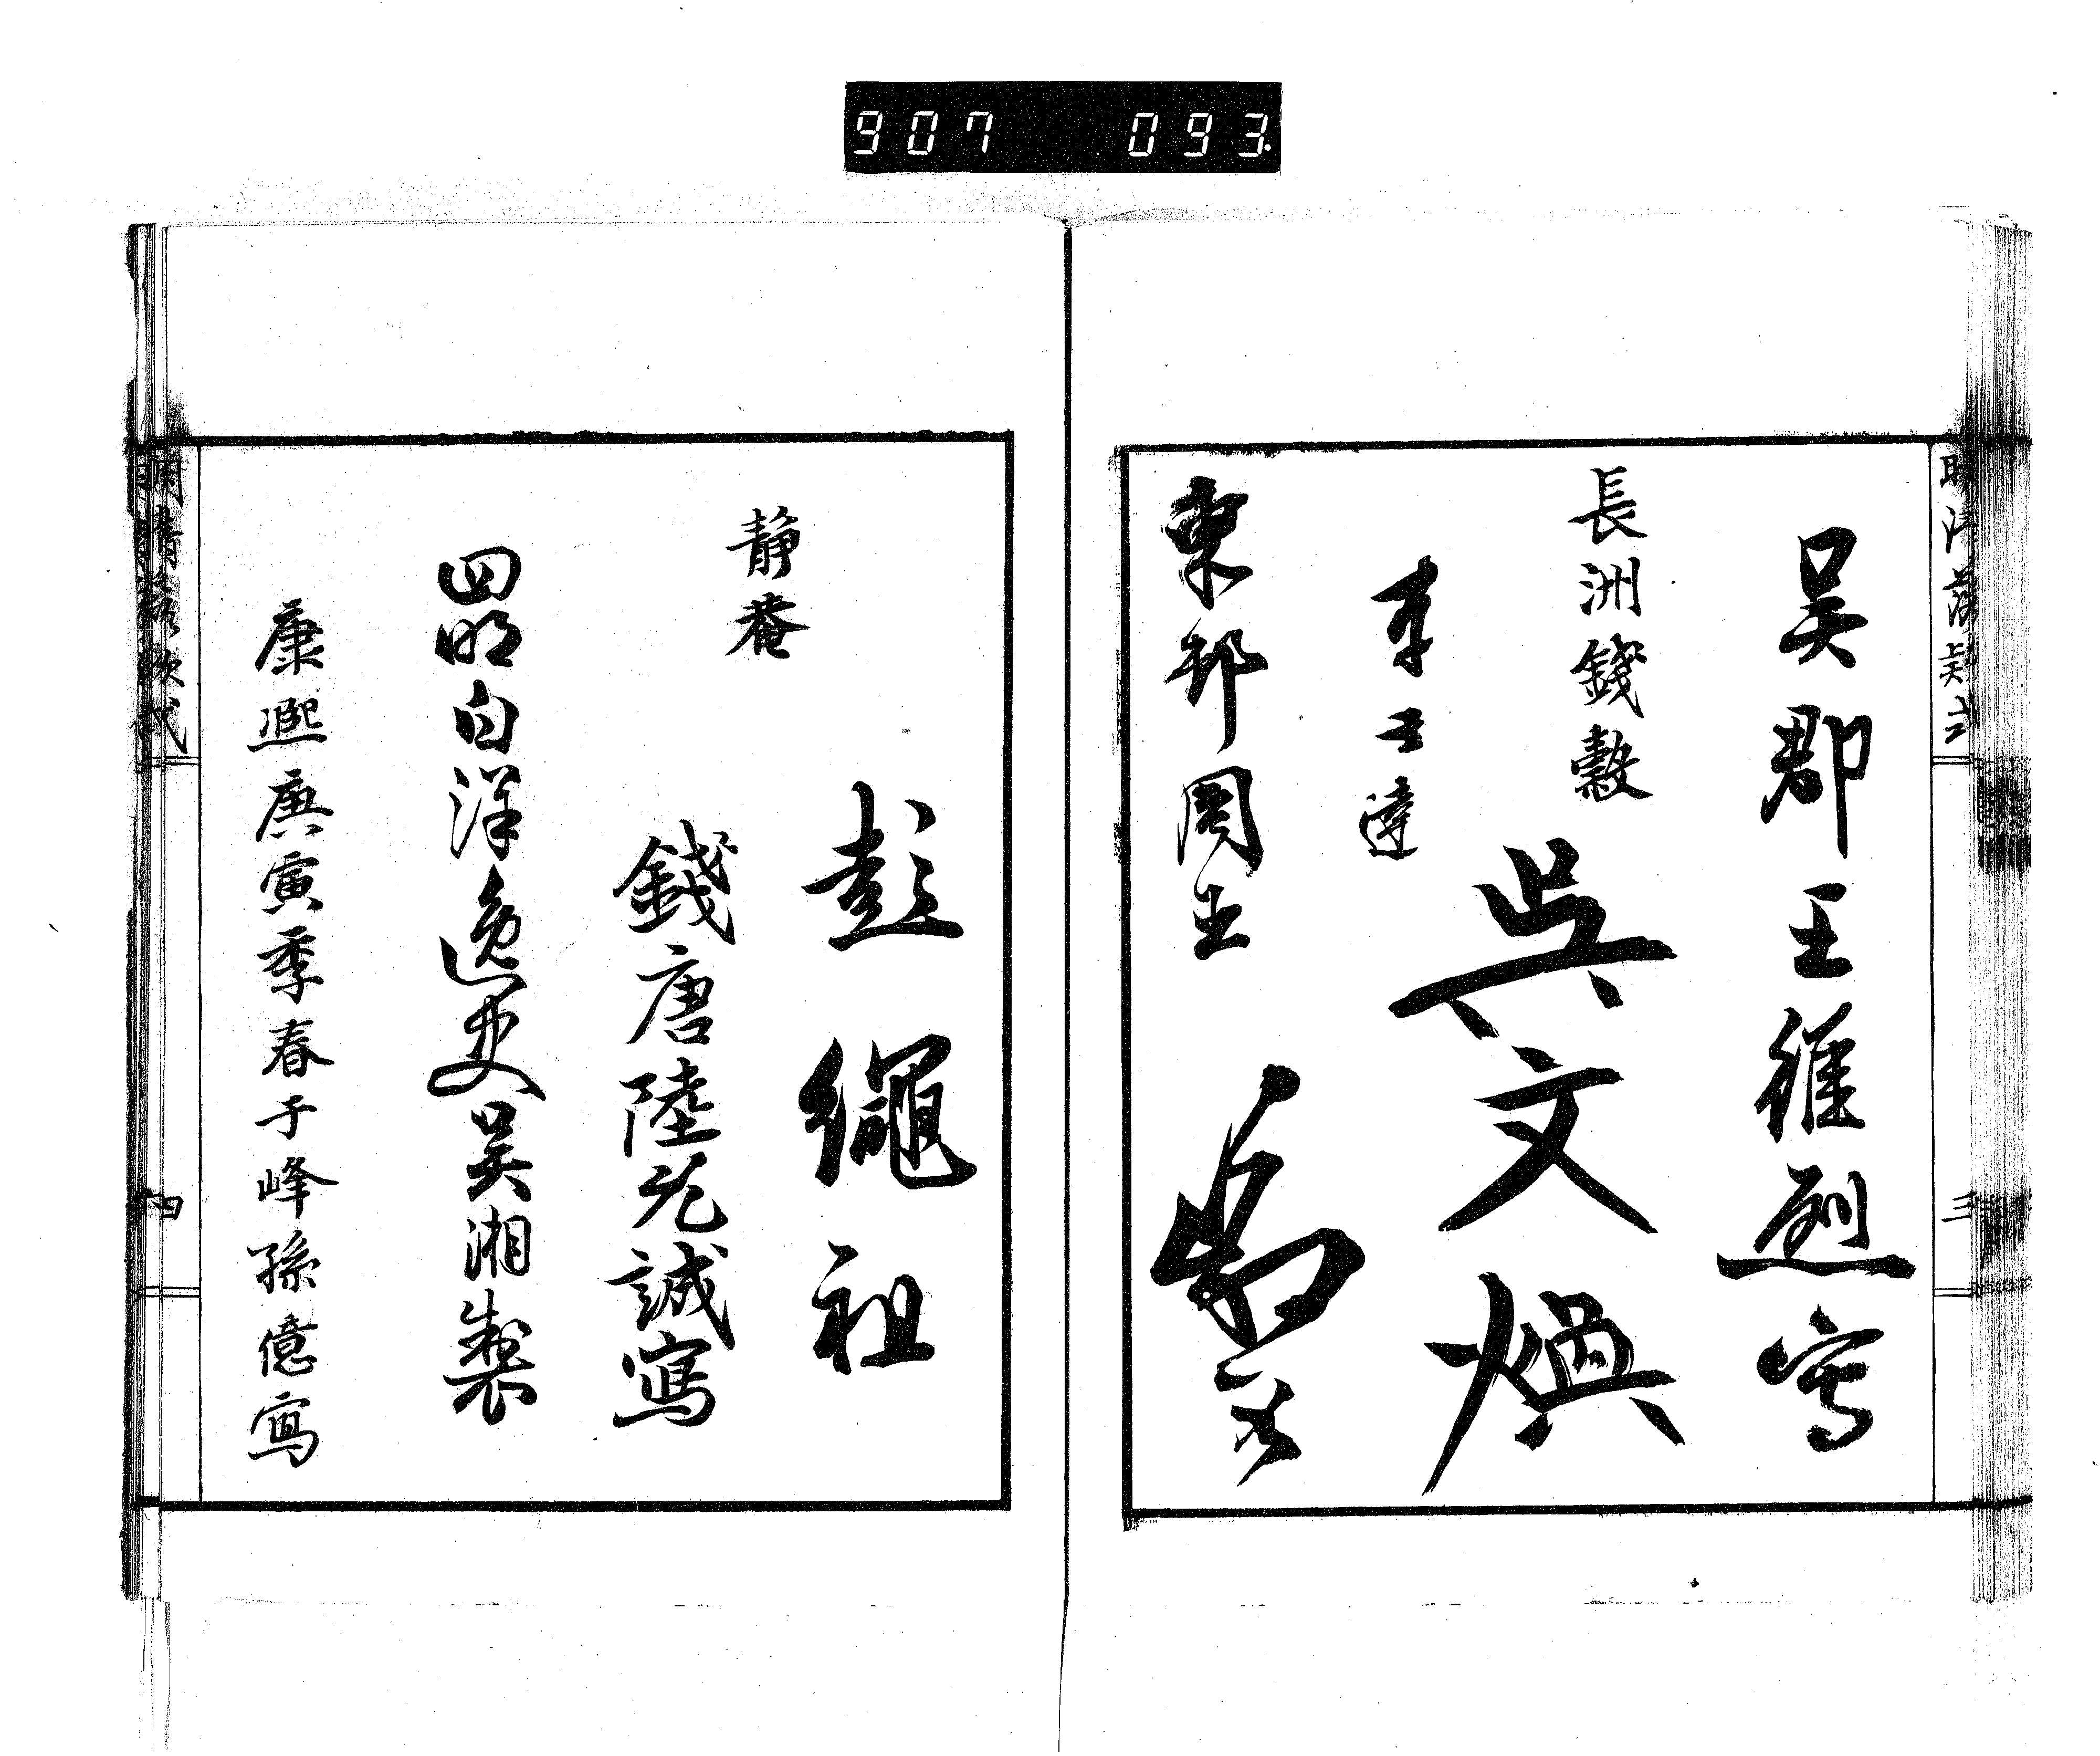 907 093
明清落款式
三
吳郡王維烈寫
長洲錢穀
吳文煥
李士達
東邨周
靜菴
彭繩祖
錢唐陸允誠寫
四明白洋逸史吳湘製
康熙庚寅季春于峰孫億寫
明清落款式
四